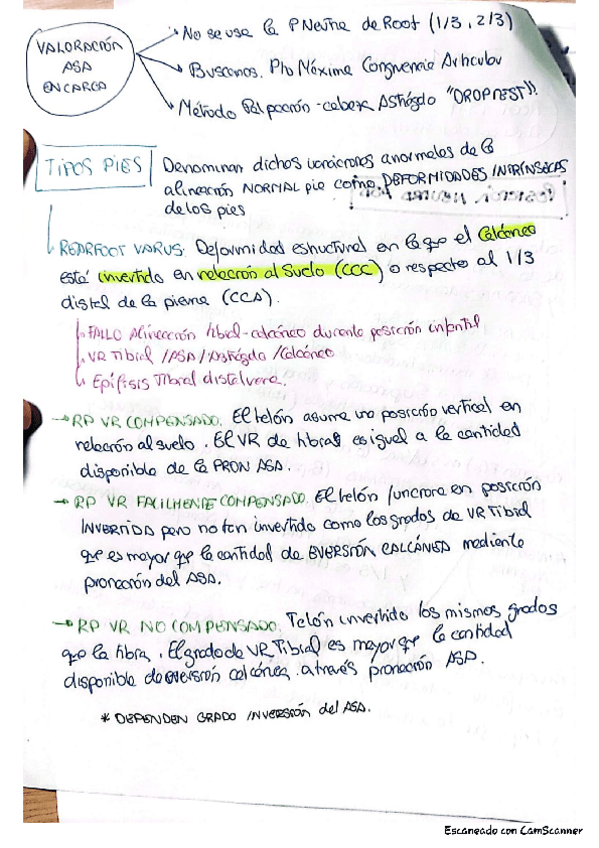 VALORACIÓN
ASA
EN CARGA
No se usa la P Neutra de Root (1/3, 2/3)
Buscamos. Pto Máxima Congruencia Articular
Método Palpación - cabeza Astrágalo "DROP TEST"
TIPOS PIES
Denominan dichas variaciones anormales de la
alineación NORMAL pie como DEFORMIDADES INTRÍNSECAS
de los pies
REARFOOT VARUS: Deformidad estructural en la que el Calcáneo
está invertido en relación al suelo (CCC) o respecto al 1/3
distal de la pierna (CCA).
FALLO Alineación tibial-calcáneo durante posición infantil
VR Tibial / ASA / Astrágalo / Calcáneo
Epífisis Tibial distal vara.
→ RP VR COMPENSADO. El talón asume una posición vertical en
relación al suelo. El VR de tibial es igual a la cantidad
disponible de la PRON ASA.
→ RP VR FACILMENTE COMPENSADO. El talón funciona en posición
INVERTIDA pero no tan invertido como los grados de VR Tibial
que es mayor que la cantidad de EVERSIÓN CALCÁNEA mediante
pronación del ASA.
→ RP VR NO COMPENSADO. Talón invertido los mismos grados
que la tibia. El grado de VR Tibial es mayor que la cantidad
disponible de eversión calcánea a través pronación ASA.
* DEPENDEN GRADO INVERSIÓN del ASA.
Escaneado con CamScanner